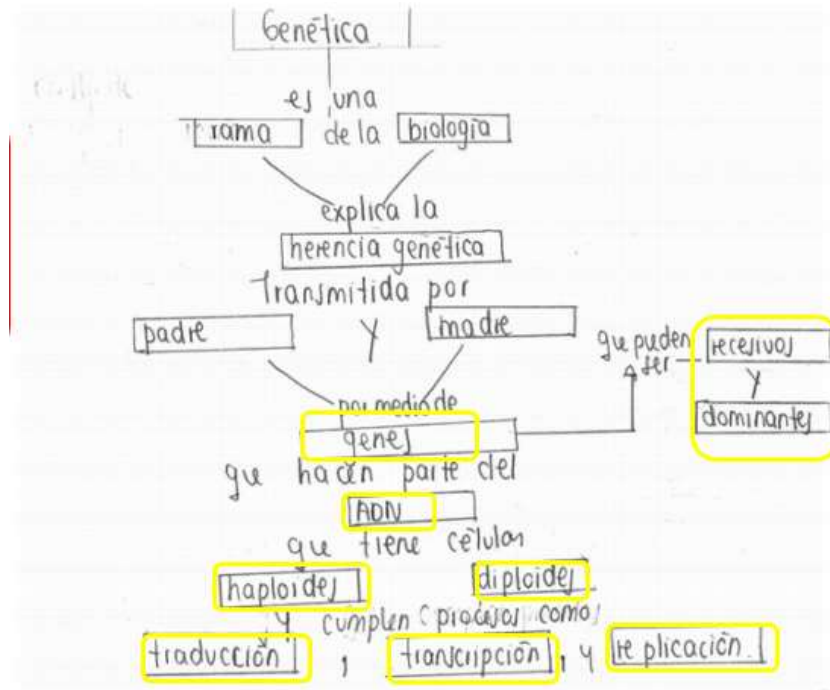 Genética
es una
rama de la biología
explica la
herencia genética
Transmitida por
padre y madre
que pueden
ser recesivos
y
dominantes
por medio de
genes
que hacen parte del
ADN
que tiene células
haploides diploides
y cumplen procesos como
traducción , transcripción , y replicación.